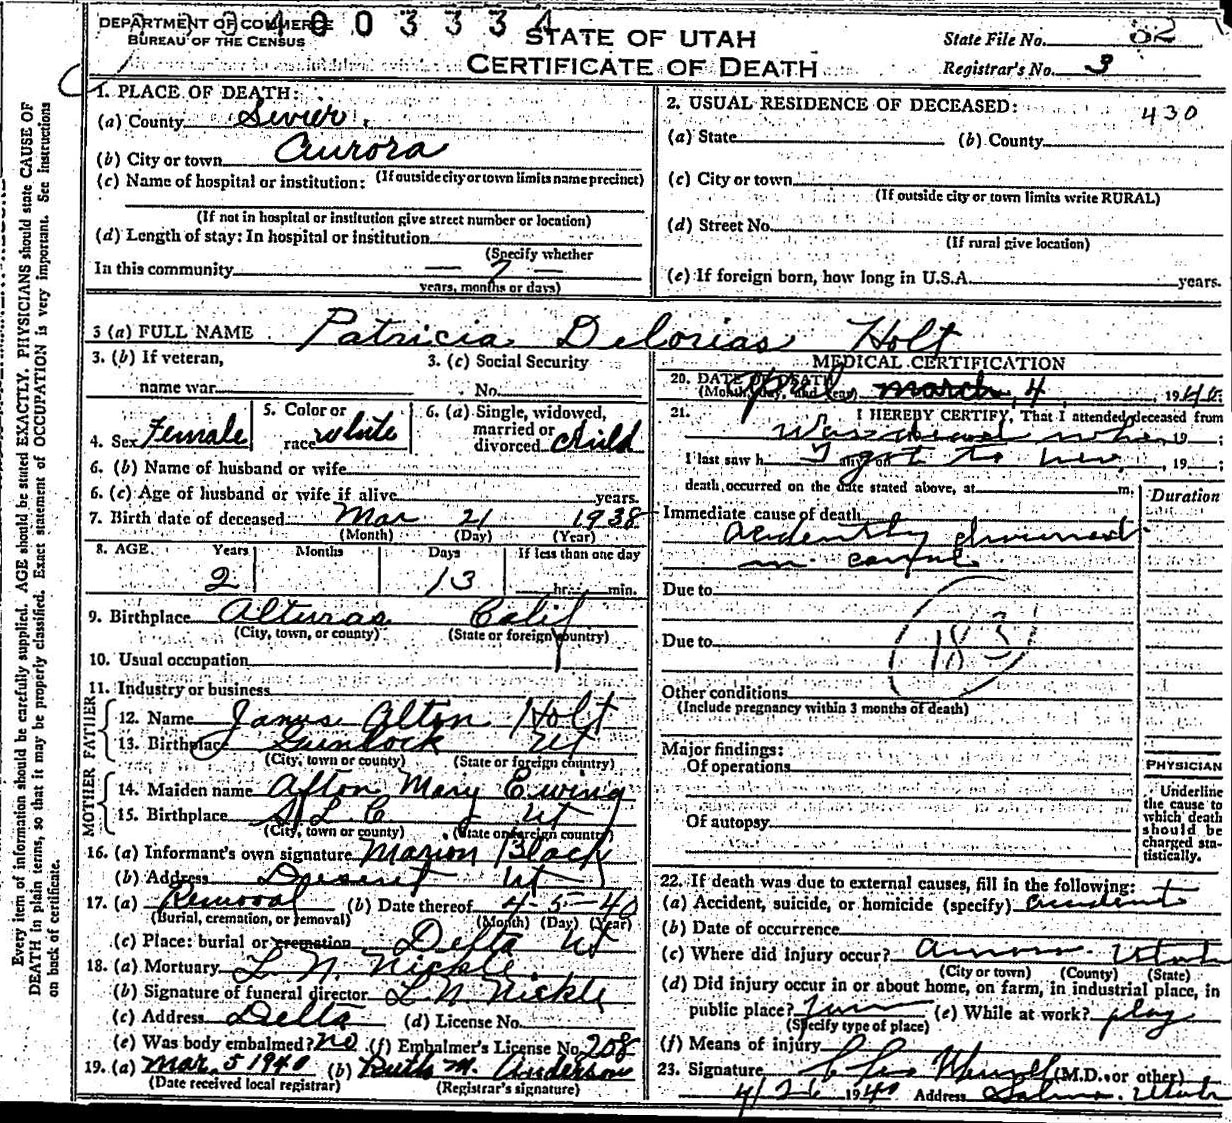 DEPARTMENT OF COMMERCE
BUREAU OF THE CENSUS
400333
STATE OF UTAH
CERTIFICATE OF DEATH
State File No. 82
Registrar's No. 3
Every item of information should be carefully supplied. AGE should be stated EXACTLY. PHYSICIANS should state CAUSE OF
DEATH in plain terms, so that it may be properly classified. Exact statement of OCCUPATION is very important. See instructions
on back of certificate.
1. PLACE OF DEATH:
(a) County Sevier
(b) City or town Aurora
(If outside city or town limits name precinct)
(c) Name of hospital or institution:
(If not in hospital or institution give street number or location)
(d) Length of stay: In hospital or institution
(Specify whether
In this community — 7 —
years, months or days)
2. USUAL RESIDENCE OF DECEASED:
430
(a) State (b) County
(c) City or town
(If outside city or town limits write RURAL)
(d) Street No.
(If rural give location)
(e) If foreign born, how long in U.S.A. years.
3 (a) FULL NAME Patricia Delorias Holt
3. (b) If veteran,
name war
3. (c) Social Security
No.
4. Sex Female
5. Color or
race white
6. (a) Single, widowed,
married or
divorced child
6. (b) Name of husband or wife
6. (c) Age of husband or wife if alive years.
7. Birth date of deceased Mar 21 1938
(Month) (Day) (Year)
8. AGE Years Months Days If less than one day
2 13 hr. min.
9. Birthplace Alturas Calif
(City, town, or county) (State or foreign country)
10. Usual occupation
11. Industry or business
FATHER
12. Name James Alton Holt
13. Birthplace Gunlock Ut
(City, town or county) (State or foreign country)
MOTHER
14. Maiden name Afton Mary Ewing
15. Birthplace S L C Ut
(City, town or county) (State or foreign country)
16. (a) Informant's own signature Marion Black
(b) Address Deseret Ut
17. (a) Removal (b) Date thereof 4-5-40
(Burial, cremation, or removal) (Month) (Day) (Year)
(c) Place: burial or cremation Delta Ut
18. (a) Mortuary L. N. Nickle.
(b) Signature of funeral director L N Nickle
(c) Address Delta (d) License No.
(e) Was body embalmed? no (f) Embalmer's License No. 208
19. (a) Mar. 5 1940 (b) Ruth M. Anderson
(Date received local registrar) (Registrar's signature)
MEDICAL CERTIFICATION
20. DATE OF DEATH
(Month, day, and year) April march 4, 1940
21. I HEREBY CERTIFY, That I attended deceased from
was dead when, 19 ;
I last saw h alive on I got to her, 19 ;
death occurred on the date stated above, at m.
Duration
Immediate cause of death
acidently drowned
in
Due to
183
Due to
Other conditions
(Include pregnancy within 3 months of death)
Major findings:
Of operations
Of autopsy
PHYSICIAN
Underline
the cause to
which death
should be
charged sta-
tistically.
22. If death was due to external causes, fill in the following:
(a) Accident, suicide, or homicide (specify) accident
(b) Date of occurrence
(c) Where did injury occur? Aurora Utah
(City or town) (County) (State)
(d) Did injury occur in or about home, on farm, in industrial place, in
public place? (e) While at work? play
(Specify type of place)
(f) Means of injury
23. Signature (M.D. or other)
4/26 1940 Address Salina. Utah